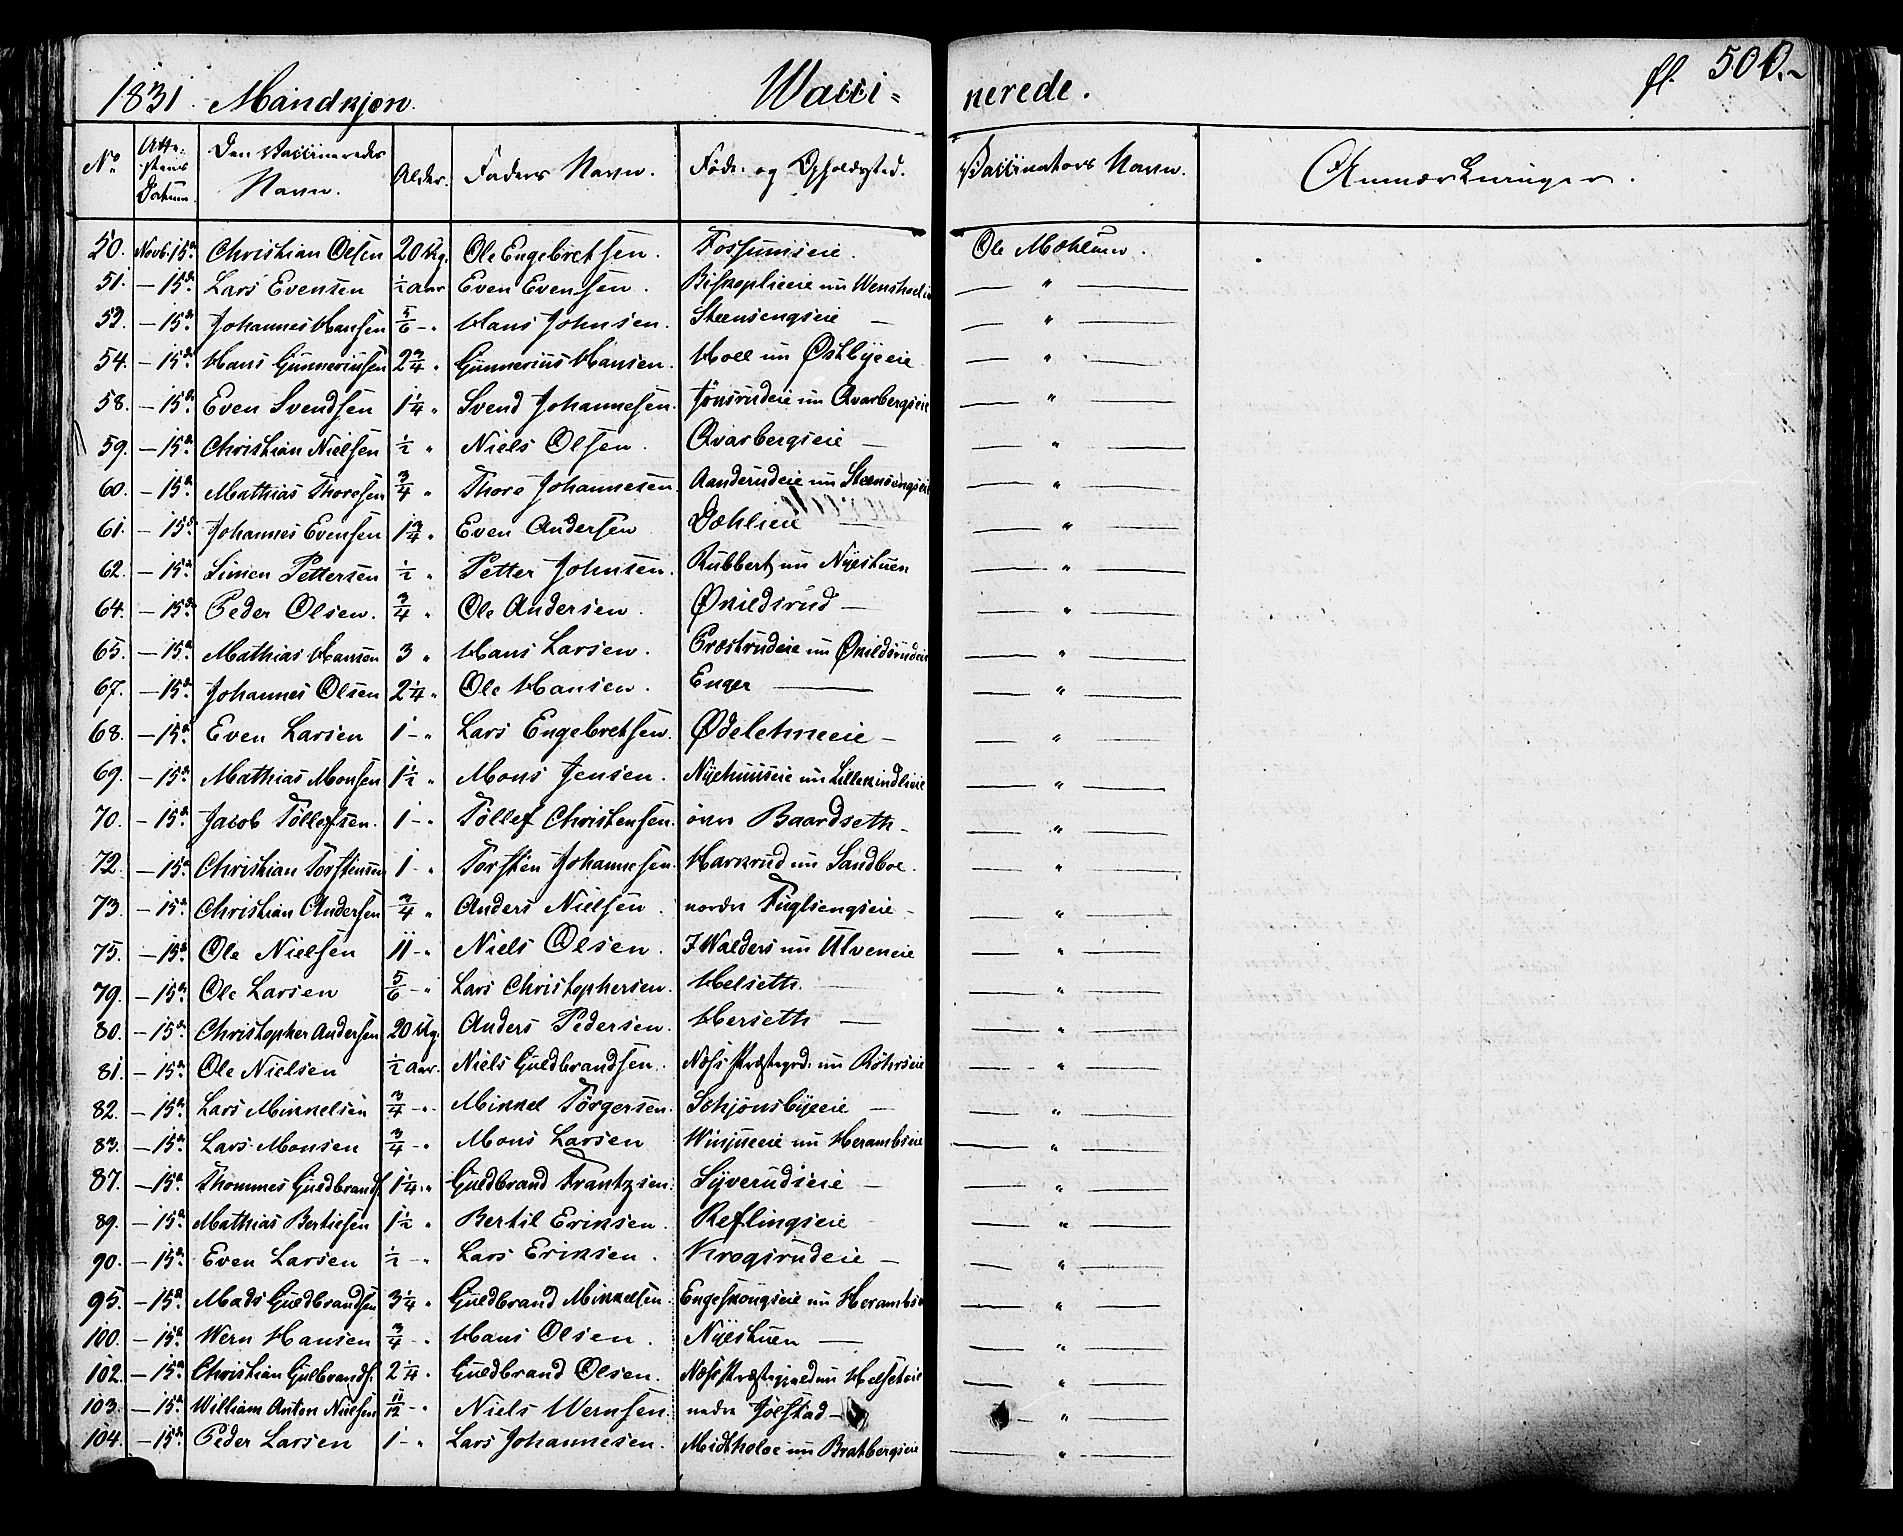 1831. Mandkjøn. Vacci= nerede. fl. 500.
No. Attestens Datum Den Vaccineredes Navn. Alder. Faders Navn. Føde- og Opholdssted. Vaccinators Navn. Anmærkninger.
50. Novb. 15de Christian Olsen 20 Ug. Ole Engebretsen. Fossumseie. Ole Mæhlum.
51. — 15de Lars Evensen ½ aar Even Evensen. Biskoplieeie nu — " —
53. — 15de Johannes Hansen 5/6 - " Hans Johnsen. Steensengseie — — " —
54. — 15de Hans Gunneriussen 2¾ " Gunnerius Hansen. Hoel nu Østbyeeie — " —
58. — 15de Even Svendsen 1¼ " Svend Johannesen. Jønsrudeie nu Qvarbergseie — " —
59. — 15de Christian Nielsen ½ " Niels Olsen. Qvarbergseie — — " —
60. — 15de Mathias Thoresen ¾ " Thore Johannesen. Aanderudeie nu Steensengseie — " —
61. — 15de Johannes Evensen 1¾ " Even Andersen Dæhlieie — — " —
62. — 15de Simen Pettersen ½ " Petter Johnsen. Rubbert nu Nyestuen — " —
64. — 15de Peder Olsen. ¾ " Ole Andersen. Økildsrud — — " —
65. — 15de Mathias Hansen 3 " Hans Larsen. Præstrudeie nu Økildsrudeie — " —
67. — 15de Johannes Olsen 2¼ " Ole Hansen. Enger — — " —
68. — 15de Even Larsen 1 - " Lars Engebretsen. Ødelehneeie — — " —
69. — 15de Mathias Monsen 1½ " Mons Jensen. Nyehuuseie nu Lillekindlieie — " —
70. — 15de Jacob Tøllefsen. 1 - " Tøllef Christensen. øvre Baardseth — — " —
72. — 15de Christian Torstensen 1 - " Torsten Johannesen. Harkrud nu Sandboe. — " —
73. — 15de Christian Andersen ¾ " Anders Nielsen. nordre Fuglsengseie — — " —
75. — 15de Ole Nielsen 11 - " Niels Olsen. I Walders nu Ulveneie — " —
79. — 15de Ole Larsen 5/6 - " Lars Christophersen. Helseth. — " —
80. — 15de Christopher Andersen 20 Ug. Anders Pedersen. Herseth — — " —
81. — 15de Ole Nielsen ½ aar. Niels Guldbrandsen. Næss Præstegrd. nu Røhrseie — " —
82. — 15de Lars Mikkelsen ¾ - " Mikkel Tørgersen. Schjønsbyeeie — — " —
83. — 15de Lars Monsen ¾ - " Mons Larsen Winjueeie nu Herambseie — " —
87. — 15de Thommes Guldbrands. 1¼ " Guldbrand Frantzsen. Syverudseie — — " —
89. — 15de Mathias Bertilsen 1½ " Bertil Eriksen. Reflingseie — " —
90. — 15de Even Larsen ½ - " Lars Eriksen. Krogsrudeie — — " —
95. — 15de Mads Guldbrandsen 3¼ " Guldbrand Mikkelsen. Engeskougseie nu Herambs — " —
100. — 15de Wern Hansen ¾ - " Hans Olsen. Nyestuen — — " —
102. — 15de Christian Gulbrands. 2¼ " Guldbrand Olsen. Næss Præstegjeld nu Helseteie — " —
103. — 15de William Anton Nielsen 11/12 - " Niels Wernsen. nedre Jølstad — — " —
104. — 15de Peder Larsen 1 - " Lars Johannesen. Midtholoe nu Bratbergseie — " —